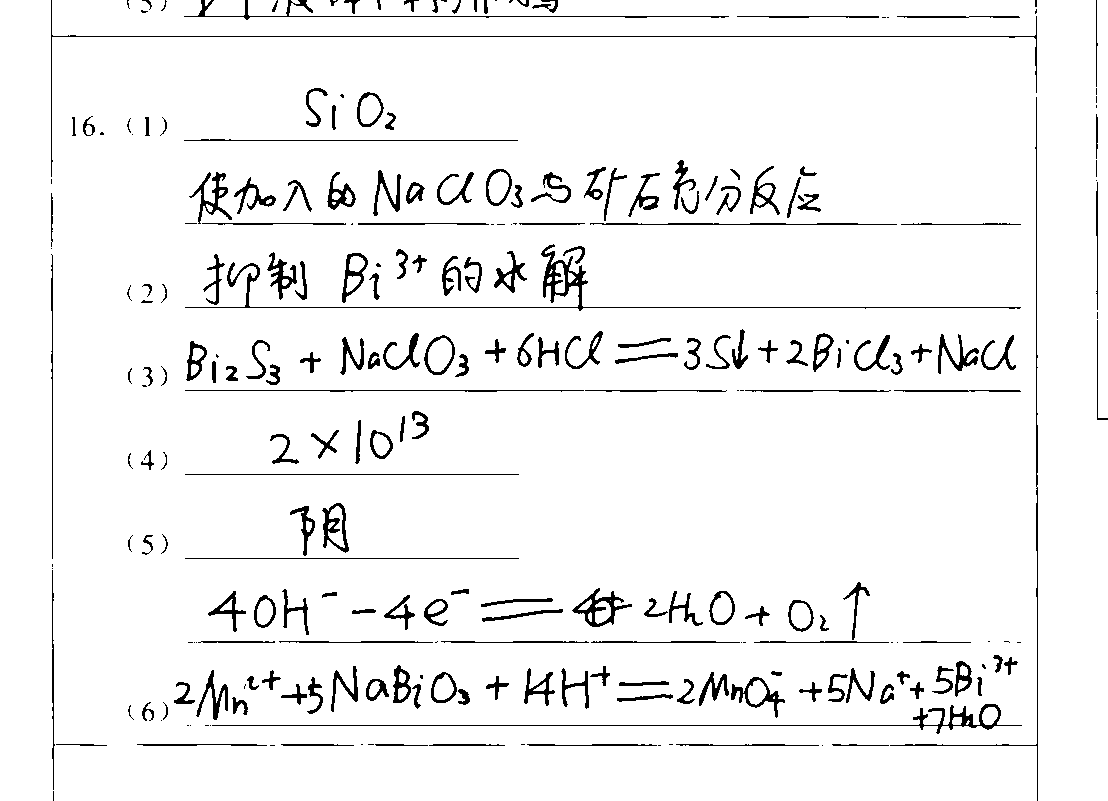 16. (1) SiO₂
使加入的NaClO₃与矿石充分反应
(2) 抑制 Bi³⁺的水解
(3) Bi₂S₃ + NaClO₃ + 6HCl ══ 3S↓ + 2BiCl₃ + NaCl
(4) 2×10¹³
(5) 阴
4OH⁻ - 4e⁻ ══ 2H₂O + O₂↑
(6) 2Mn²⁺ + 5NaBiO₃ + 14H⁺ ══ 2MnO₄⁻ + 5Na⁺ + 5Bi³⁺
+7H₂O